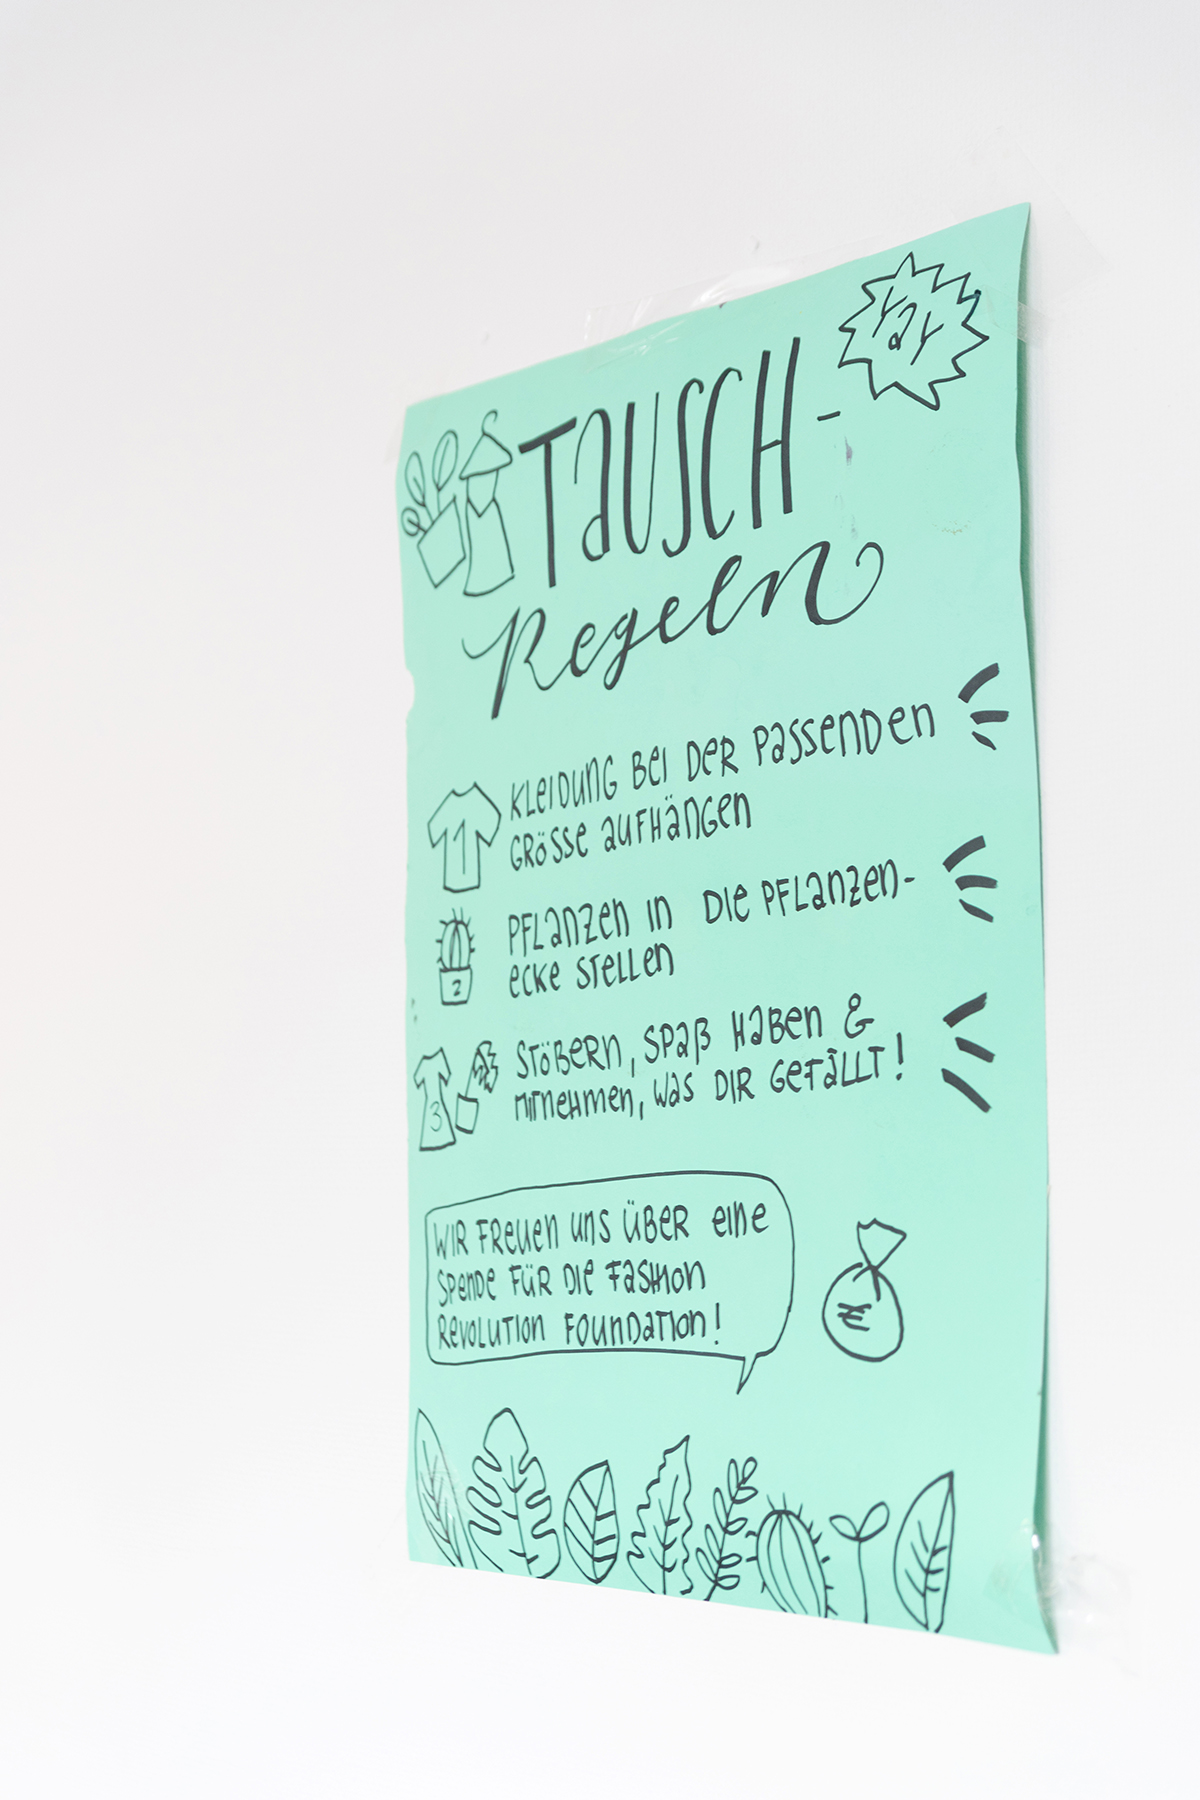 rar
TaUSCH-
Regeln
1
KLeIDUNG BeI DeR PaSSenDen
GRÖSSe aUFHÄNGen
2
PFLanZen In DIe PFLanZen-
ecKe STeLLen
3
STÖBeRn, SPaß HaBen &
MITneHMen, Was DIR GeFÄLLT!
WIR FReUen Uns ÜBeR eIne
SPenDe FÜR DIe FaSHIOn
ReVOLUTIOn FOUnDaTIOn!
€